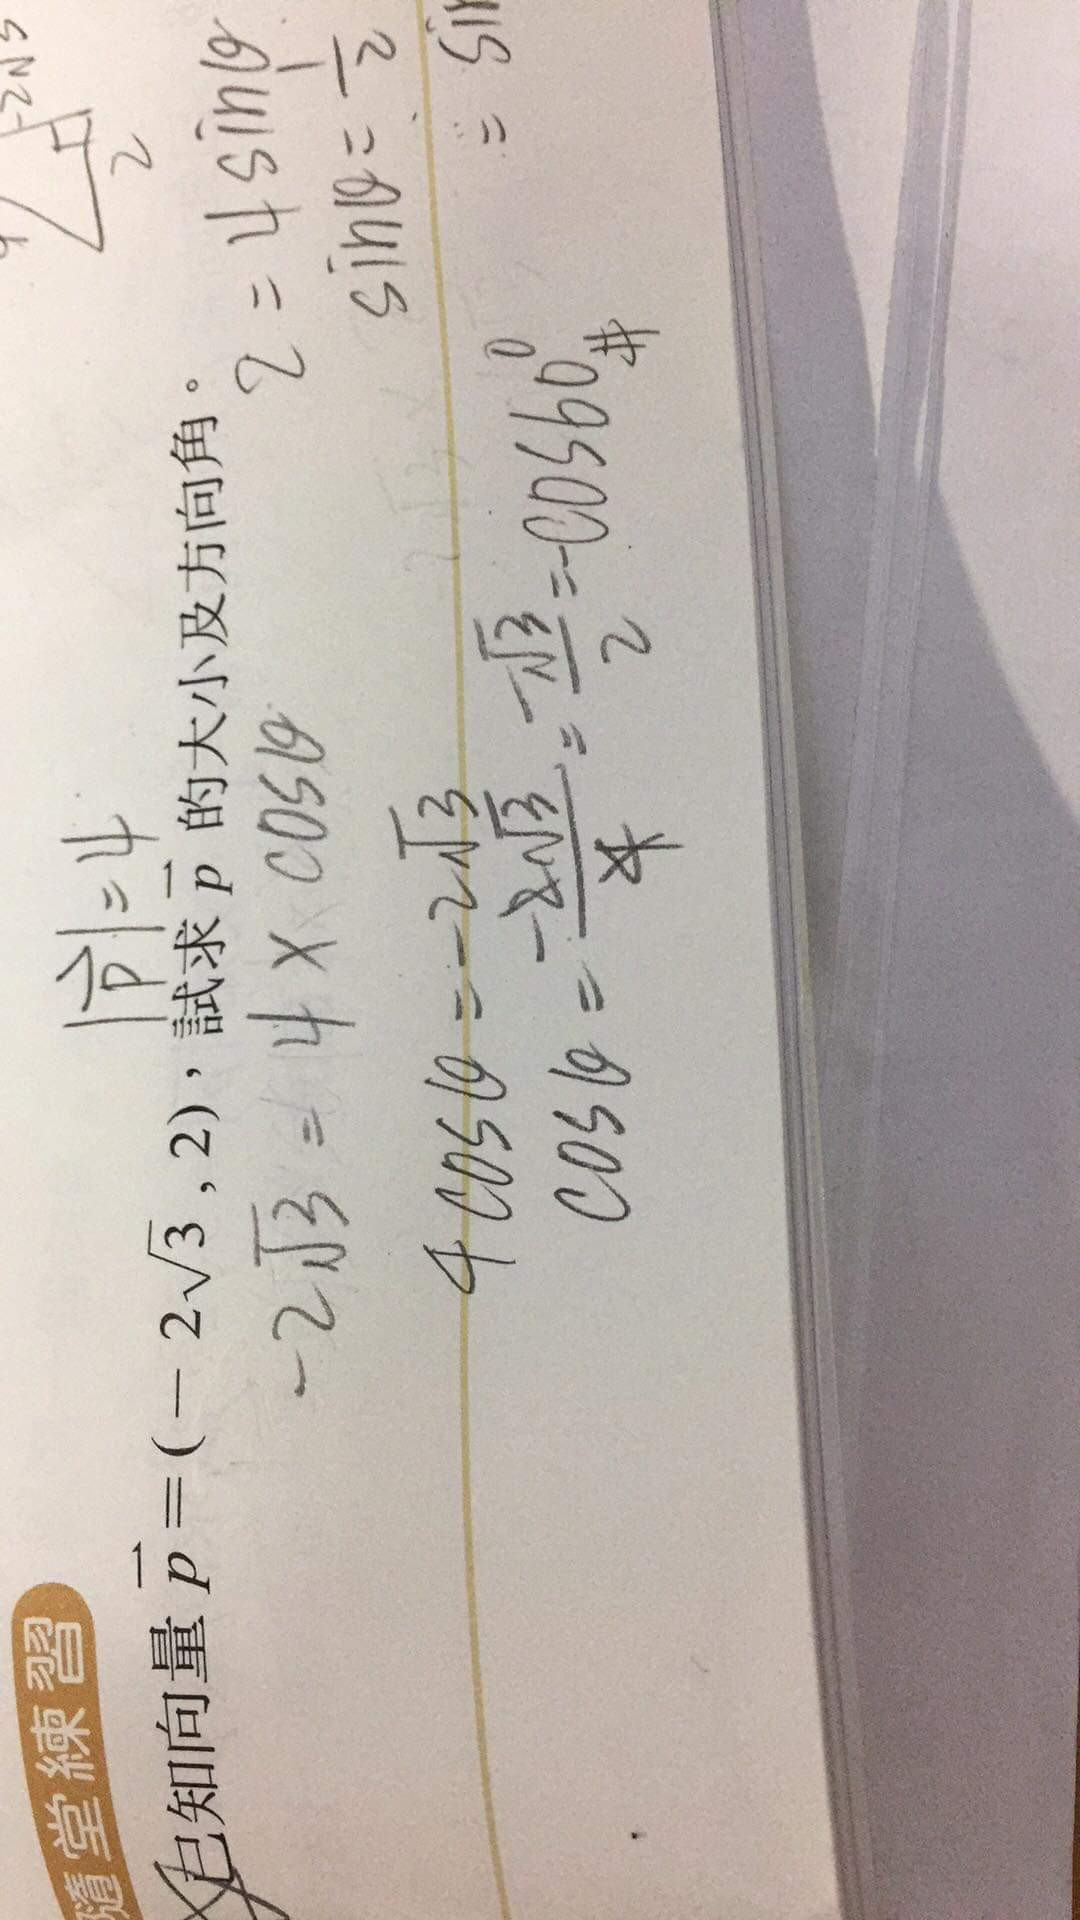 隨堂練習
|p⃗|=4
已知向量 p⃗ =(−2√3 , 2)，試求 p⃗ 的大小及方向角。
-2√3 = 4 × cosθ
4cosθ = -2√3
cosθ = -2√3/4 = -√3/2 = -cos60°#
2
2 = 4 sinθ
sinθ = 1/2
= sin